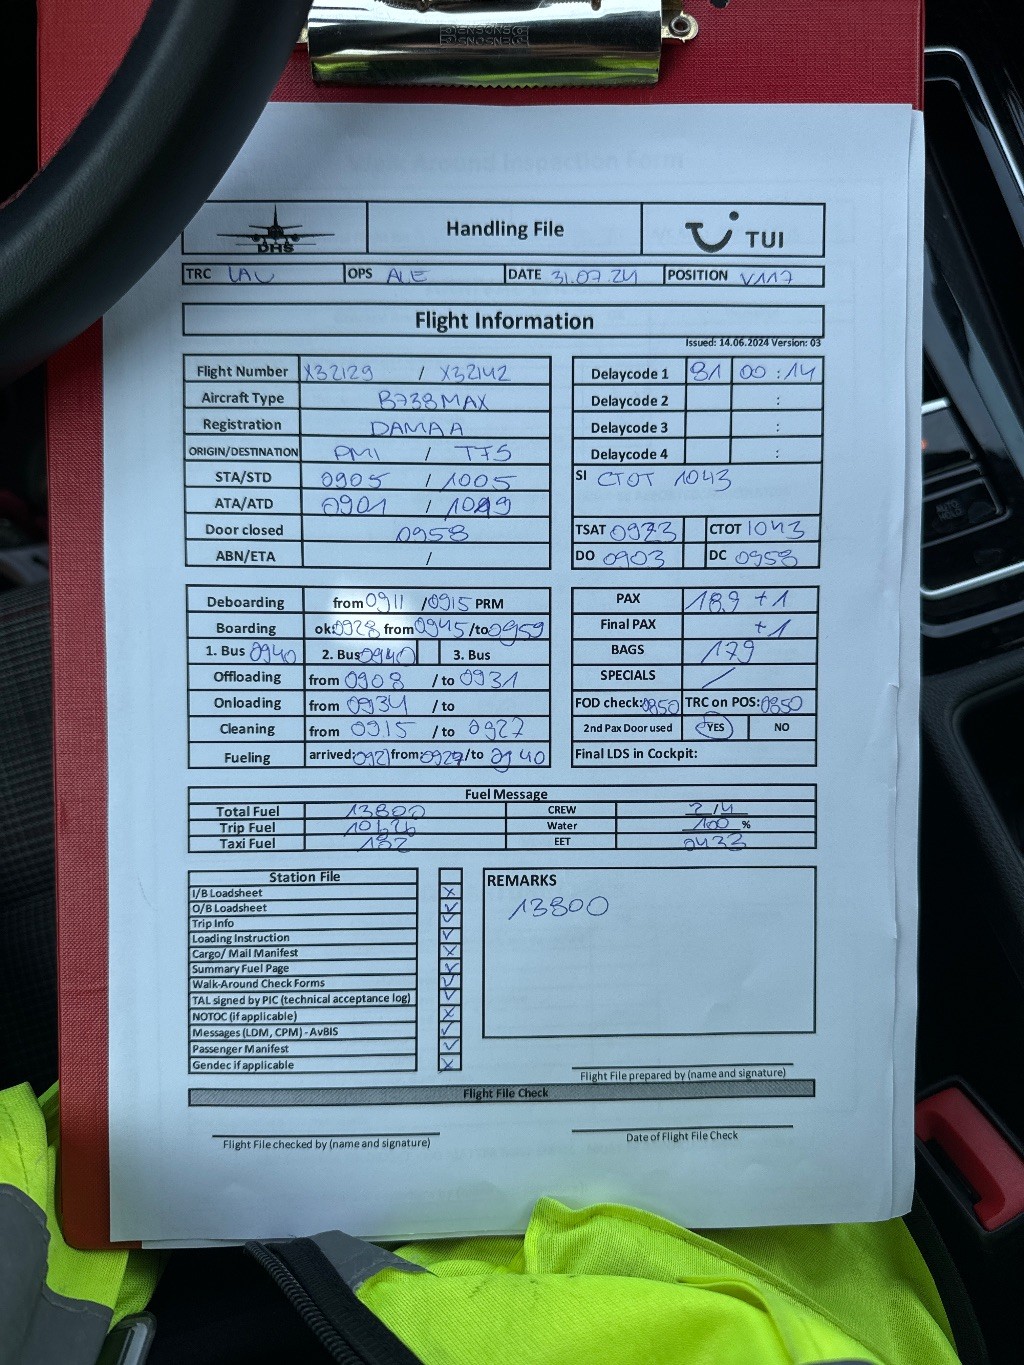 DHS Handling File TUI
TRC LAU OPS ALE DATE 31.07.24 POSITION V117
Flight Information
Issued: 14.06.2024 Version: 03
Flight Number X32129 / X32142 Delaycode 1 81 00 : 14
Aircraft Type B738MAX Delaycode 2 :
Registration DAMAA Delaycode 3 :
ORIGIN/DESTINATION PMI / TFS Delaycode 4 :
STA/STD 0905 / 1005 SI CTOT 1043
ATA/ATD 0901 /
Door closed 0958 TSAT CTOT 1043
ABN/ETA / DO 0903 DC 0958
Deboarding from 0911 / 0915 PRM PAX 189 + 1
Boarding ok: 0928 from 0945 /to 0959 Final PAX +1
1. Bus 0940 2. Bus 0940 3. Bus BAGS 179
Offloading from 0908 / to 0931 SPECIALS /
Onloading from 0934 / to FOD check: 0850 TRC on POS: 0850
Cleaning from 0915 / to 0927 2nd Pax Door used YES NO
Fueling arrived: 0921 from: /to 0940 Final LDS in Cockpit:
Fuel Message
Total Fuel 13800 CREW 2/4
Trip Fuel 10626 Water 100 %
Taxi Fuel 182 EET 0433
Station File
REMARKS
13800
I/B Loadsheet X
O/B Loadsheet ✓
Trip Info ✓
Loading Instruction ✓
Cargo/ Mail Manifest X
Summary Fuel Page ✓
Walk-Around Check Forms ✓
TAL signed by PIC (technical acceptance log) ✓
NOTOC (if applicable) X
Messages (LDM, CPM) - AvBIS ✓
Passenger Manifest ✓
Gendec if applicable X
Flight File prepared by (name and signature)
Flight File Check
Flight File checked by (name and signature) Date of Flight File Check